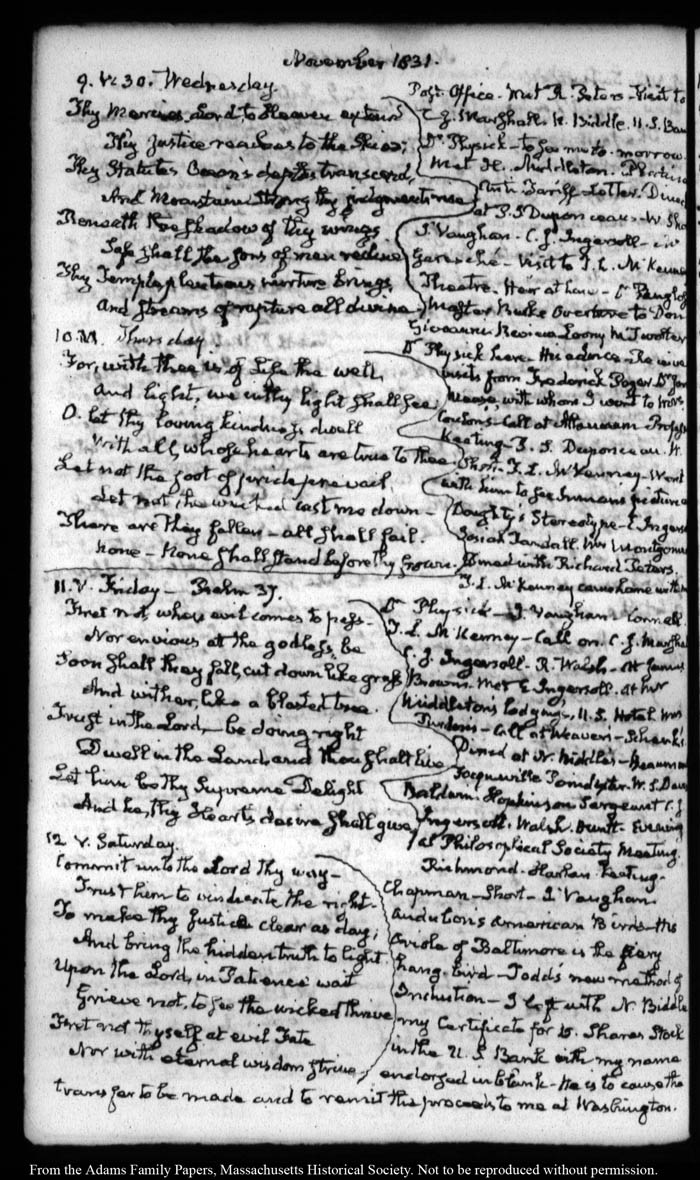 November 1831.
9. V. 30. Wednesday.
Thy Mercies, Lord, to Heaven extend
Thy justice reaches to the Skies;
Thy Statutes Ocean's depths transcend,
And Mountains strong thy judgments rise
Beneath the shadow of thy wings
Safe shall the Sons of men recline
Thy Temple plenteous nurture brings
And streams of rapture all divine
Post Office. Met R. Peters. Visit to
C. J. Marshall. N. Biddle. U.S. Ban
Dr. Physick to see me to-morrow.
Met H. Middleton.
Anti Tariff Letter. Dined
at P. S. Duponceau. W. Sho
J. Vaughan. C. J. Ingersoll
Garesché. Visit to T. L. McKenne
Theatre. Heir at Law. Dr. Panglos
Master Burke Overture to Don
Giovanni Review Loony McTwolter
10. VI. Thursday
For, with thee is of Life the well,
And light, we in thy light shall see
O. let thy loving kindness dwell
With all, whose hearts are true to thee
Let not the foot of pride prevail
Let not, the wicked cast me down –
There are they fallen – all shall fail.
None – None shall stand before thy frown.
Dr. Physick here. His advice. Receive
visits from Frederick
with whom I went to Mrs.
call at Athenaeum
Keating. P. S. Duponceau. W.
Short. T. L. McKenney. Went
with him to see Inman's picture
Doughty's Stereotype. E Ingers
Josiah Randall. Mrs Montgome
Dined with Richard Peters.
T. L. McKenney came home with
11. V. Friday – Psalm 37.
Fret not, when evil comes to pass.
Nor envious at the godless, be
Soon shall they fall, cut down like grass
And wither, like a blasted tree.
Trust in the Lord, be doing right
Dwell in the Land, and thou shalt live
Let him be thy Supreme Delight
And he, thy Heart's desire shall give
Dr Physick – J. Vaughan. Connell.
T. L. McKenney – Call on C. J. Marsha
C. J. Ingersoll. R. Walsh. At James
Brown's. Met E Ingersoll. at her
Middleton's lodgings. U. S. Hotel Mrs
Purdon's. Call at Weaver's. Schenk's
Dined at N. Biddle's
Poindexter. W. S. Dav
Baldwin. Hopkinson Sergeant C. J.
Ingersoll. Walsh. Evening
at Philosophical Society Meeting.
12 V. Saturday.
Commit unto the Lord thy way –
Trust him to vindicate the right.
To make thy Justice clear as day;
And bring the hidden truth to light
Upon the Lord, in Patience wait
Grieve not, to see the wicked thrive
Fret not thyself at evil Fate
Nor with eternal wisdom strive.
Richmond. Harlan Keating.
Chapman – Short – J. Vaughan.
Audubons American Birds. The
Oriole of Baltimore is the fiery
hang-bird – Todds new method of
Induction – I left with N. Biddle
my Certificate for 15. Shares Stock
in the U. S Bank with my name
endorsed in blank – He is to cause the
transfer to be made and to remit the proceeds to me at Washington.
From the Adams Family Papers, Massachusetts Historical Society. Not to be reproduced without permission.